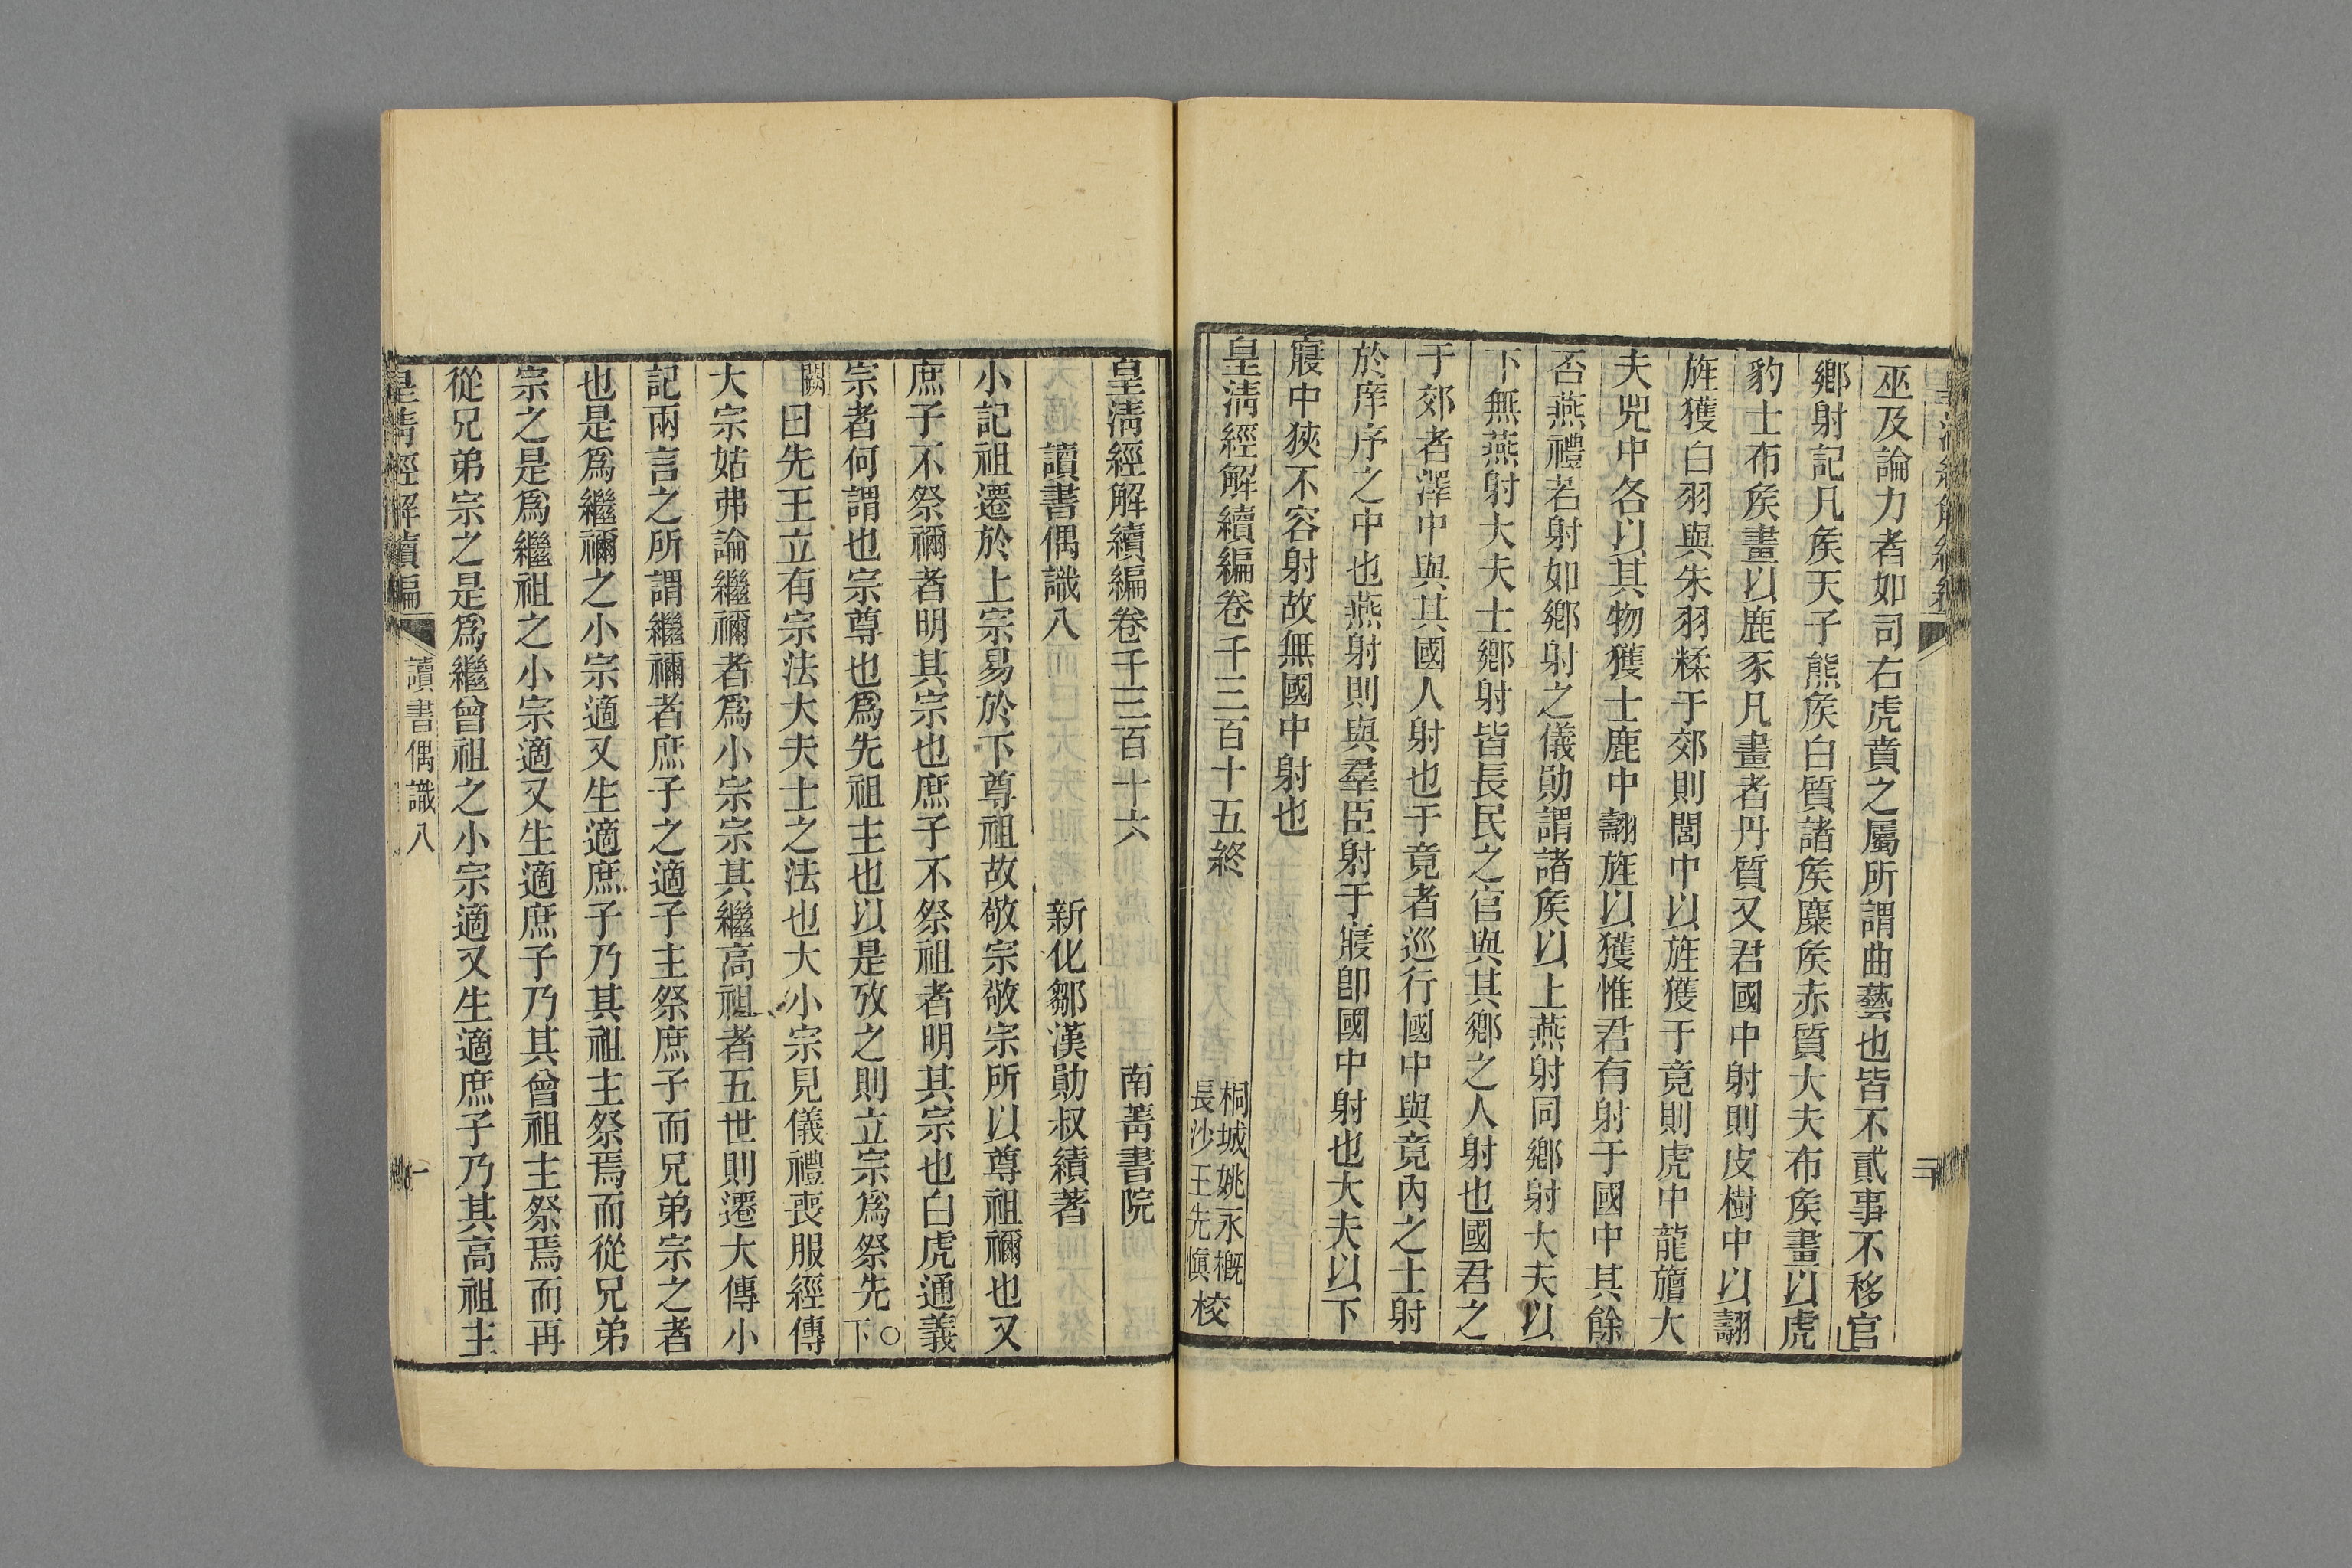 巫及論力者如司右虎賁之屬所謂曲藝也皆不貳事不移官
鄉射記凡矦天子熊矦白質諸矦麋矦赤質大夫布矦畫以虎
豹士布矦畫以鹿豕凡畫者丹質又君國中射則皮樹中以翿
旌獲白羽與朱羽糅于郊則閭中以旌獲于竟則虎中龍旜大
夫兕中各以其物獲士鹿中翿旌以獲惟君有射于國中其餘
否燕禮若射如鄉射之儀勛謂諸矦以上燕射同鄉射大夫以
下無燕射大夫士鄉射皆長民之官與其鄉之人射也國君之
于郊者澤中與其國人射也于竟者巡行國中與竟內之士射
於庠序之中也燕射則與羣臣射于寢卽國中射也大夫以下
寢中狹不容射故無國中射也
皇淸經解續編卷千三百十五終
桐城姚永概
長沙王先愼校
皇淸經解續編卷千三百十六
南菁書院
讀書偶識八
新化鄒漢勛叔績著
小記祖遷於上宗易於下尊祖故敬宗敬宗所以尊祖禰也又
庶子不祭禰者明其宗也庶子不祭祖者明其宗也白虎通義
宗者何謂也宗尊也爲先祖主也以是攷之則立宗爲祭先○下
闕曰先王立有宗法大夫士之法也大小宗見儀禮喪服經傳
大宗姑弗論繼禰者爲小宗宗其繼高祖者五世則遷大傳小
記兩言之所謂繼禰者庶子之適子主祭庶子而兄弟宗之者
也是爲繼禰之小宗適又生適庶子乃其祖主祭焉而從兄弟
宗之是爲繼祖之小宗適又生適庶子乃其曾祖主祭焉而再
從兄弟宗之是爲繼曾祖之小宗適又生適庶子乃其高祖主
皇淸經解續編
讀書偶識八
一